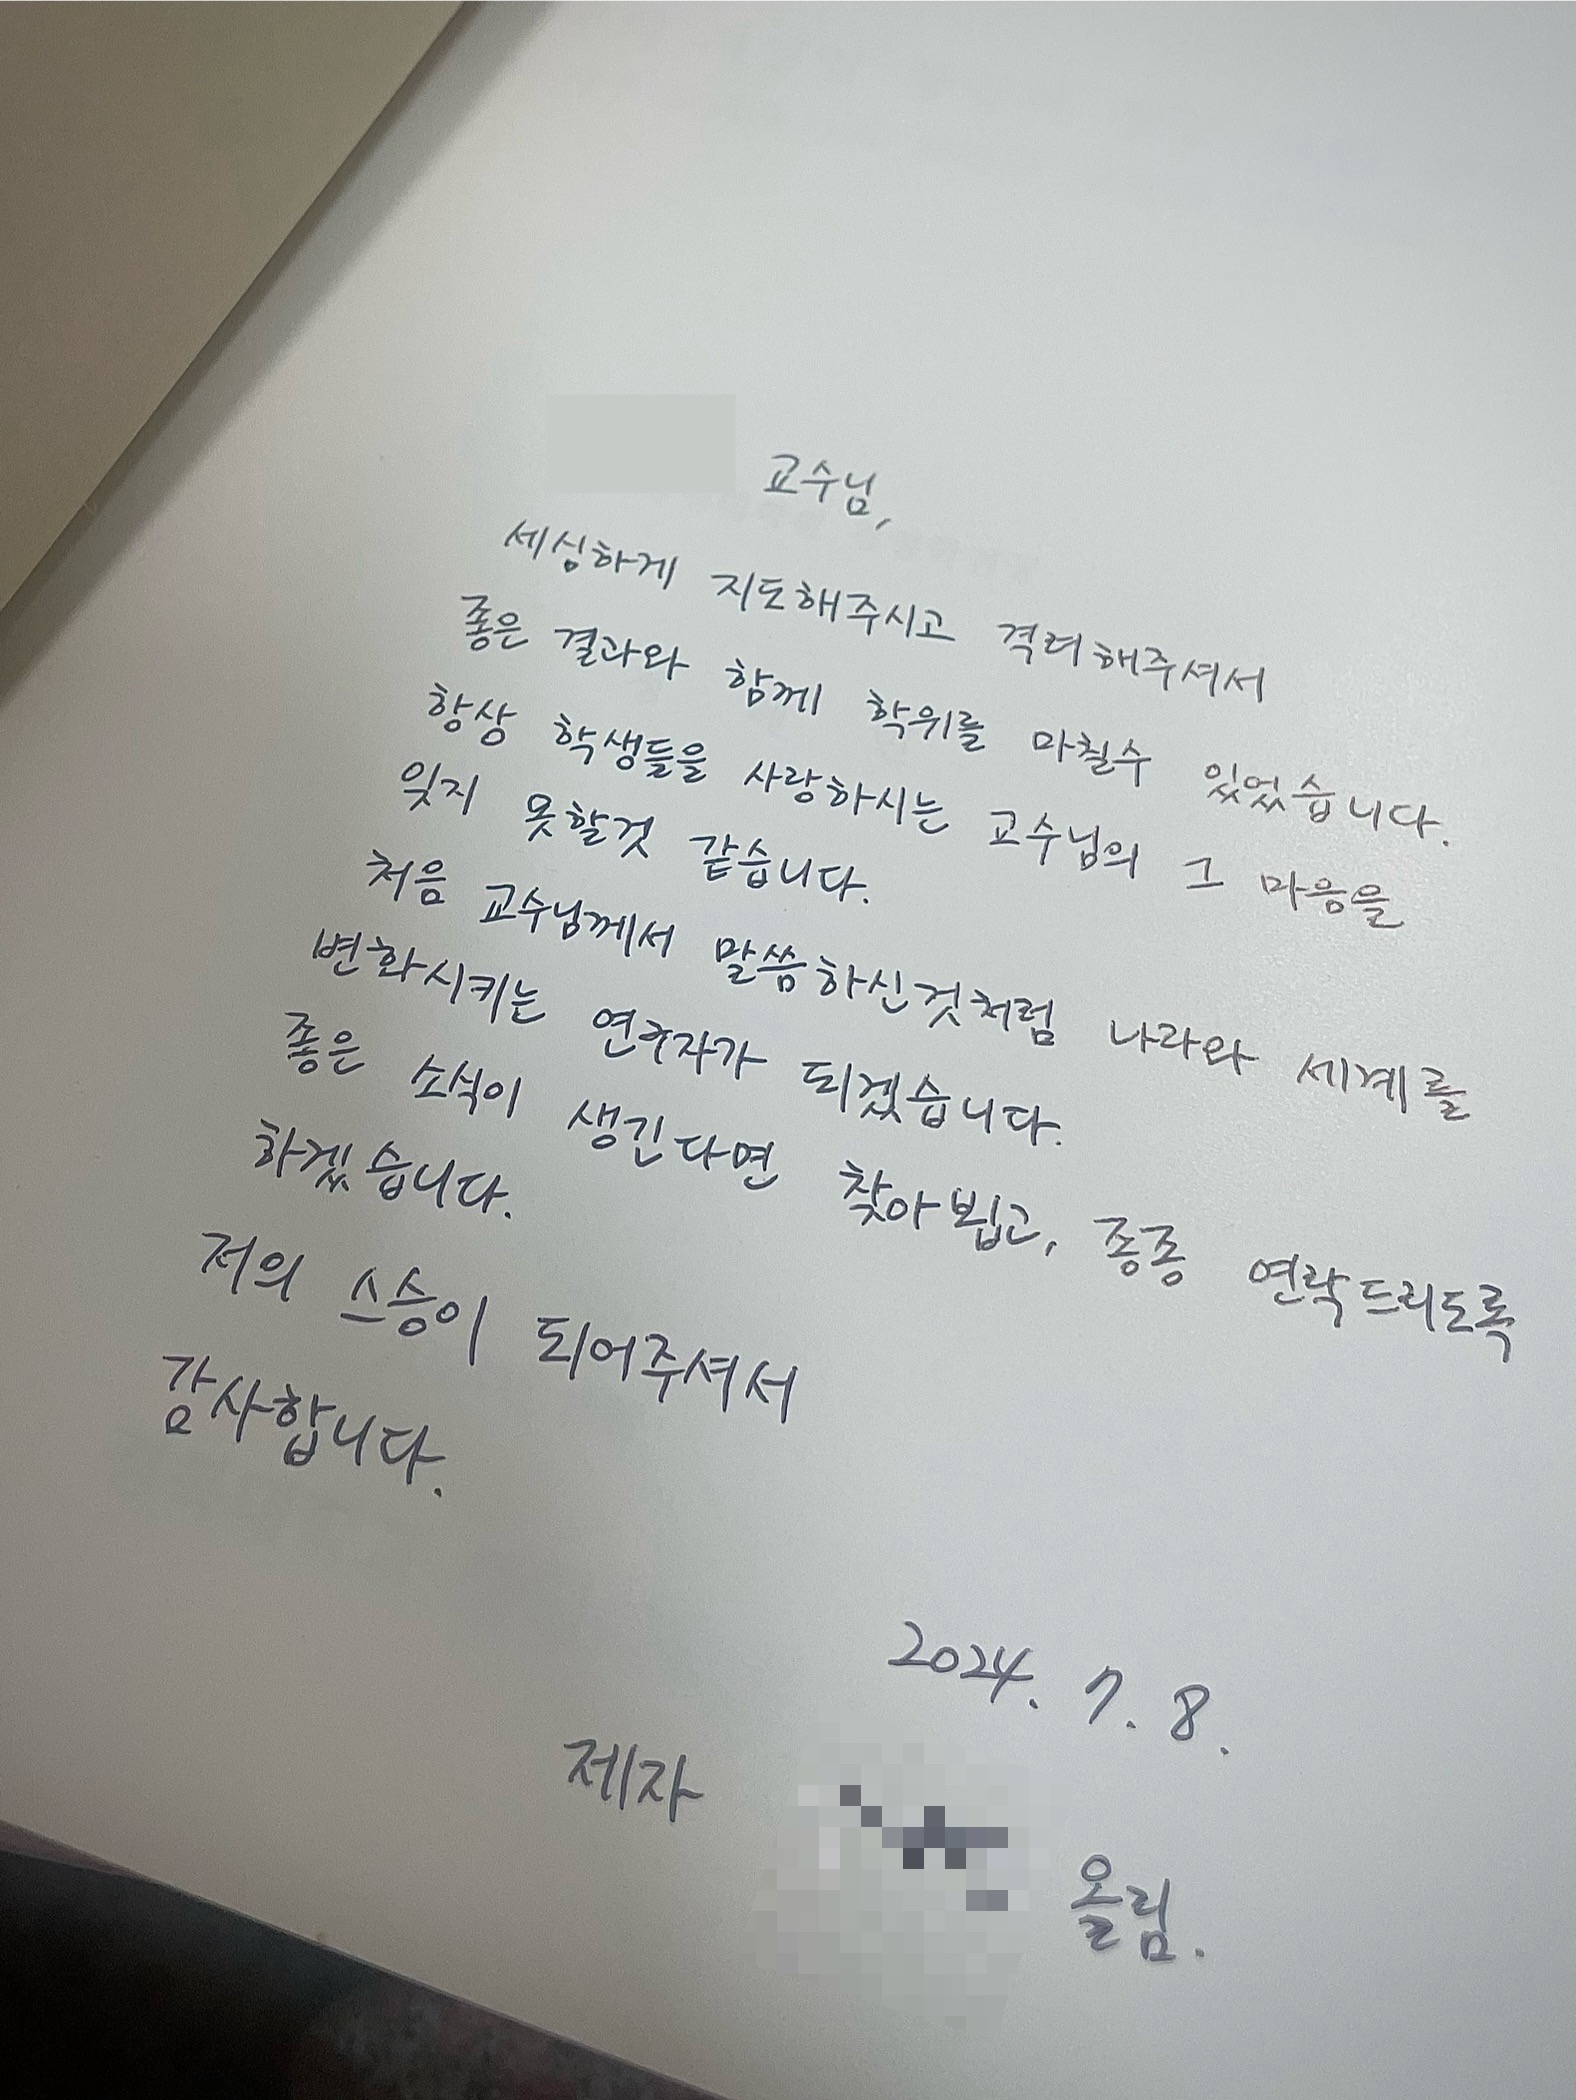 교수님,
세심하게 지도해주시고 격려해주셔서
좋은 결과와 함께 학위를 마칠수 있었습니다.
항상 학생들을 사랑하시는 교수님의 그 마음을
잊지 못할것 같습니다.
처음 교수님께서 말씀하신것처럼 나라와 세계를
변화시키는 연구자가 되겠습니다.
좋은 소식이 생긴다면 찾아뵙고, 종종 연락드리도록
하겠습니다.
저의 스승이 되어주셔서
감사합니다.
2024. 7. 8.
제자 올림.